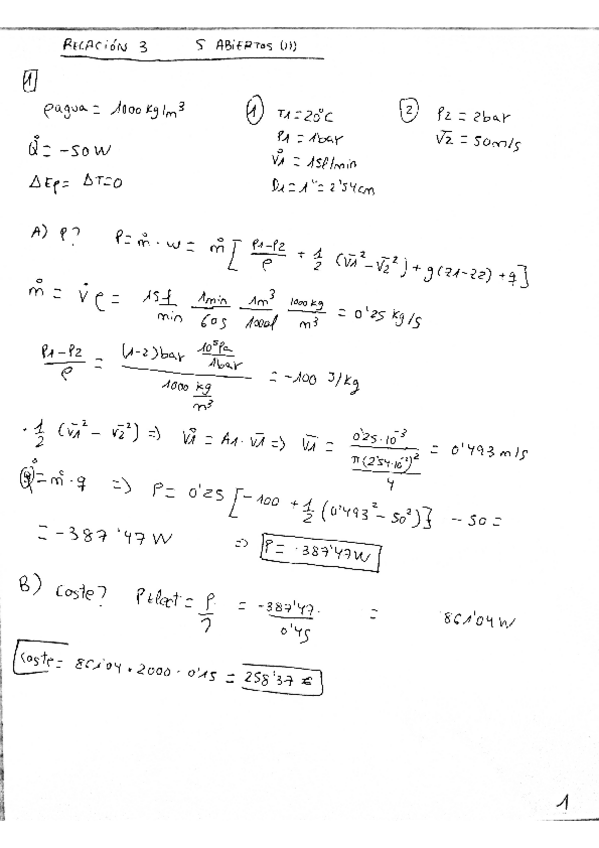 RELACIÓN 3 S ABIERTOS (II)
1
ρagua = 1000 kg/m³
Q̊ = -50 W
ΔEp = ΔT=0
① T1 = 20°C
P1 = 1bar
V̊1 = 15l/min
D1 = 1" = 2'54cm
② P2 = 2bar
v̄2 = 50m/s
A) P? P = m̊ · w = m̊ [ (P1-P2)/ρ + 1/2 (v̄1² - v̄2²) + g(z1-z2) + q ]
m̊ = V̊ ρ = 15l/min 1min/60s 1m³/1000l 1000kg/m³ = 0'25 kg/s
(P1-P2)/ρ = ((1-2)bar 10⁵Pa/1bar)/(1000 kg/m³) = -100 J/kg
· 1/2 (v̄1² - v̄2²) => V̊1 = A1 · v̄1 => v̄1 = (0'25·10⁻³)/(π(2'54·10⁻²)²/4) = 0'493 m/s
Q̊ = m̊ · q => P = 0'25 [-100 + 1/2 (0'493² - 50²)] - 50 =
= -387'47 W => P = -387'47W
B) Coste? PElect = P/η = -387'47/0'45 = 861'04 W
Coste = 861'04 · 2000 · 0'15 = 258'37 €
1